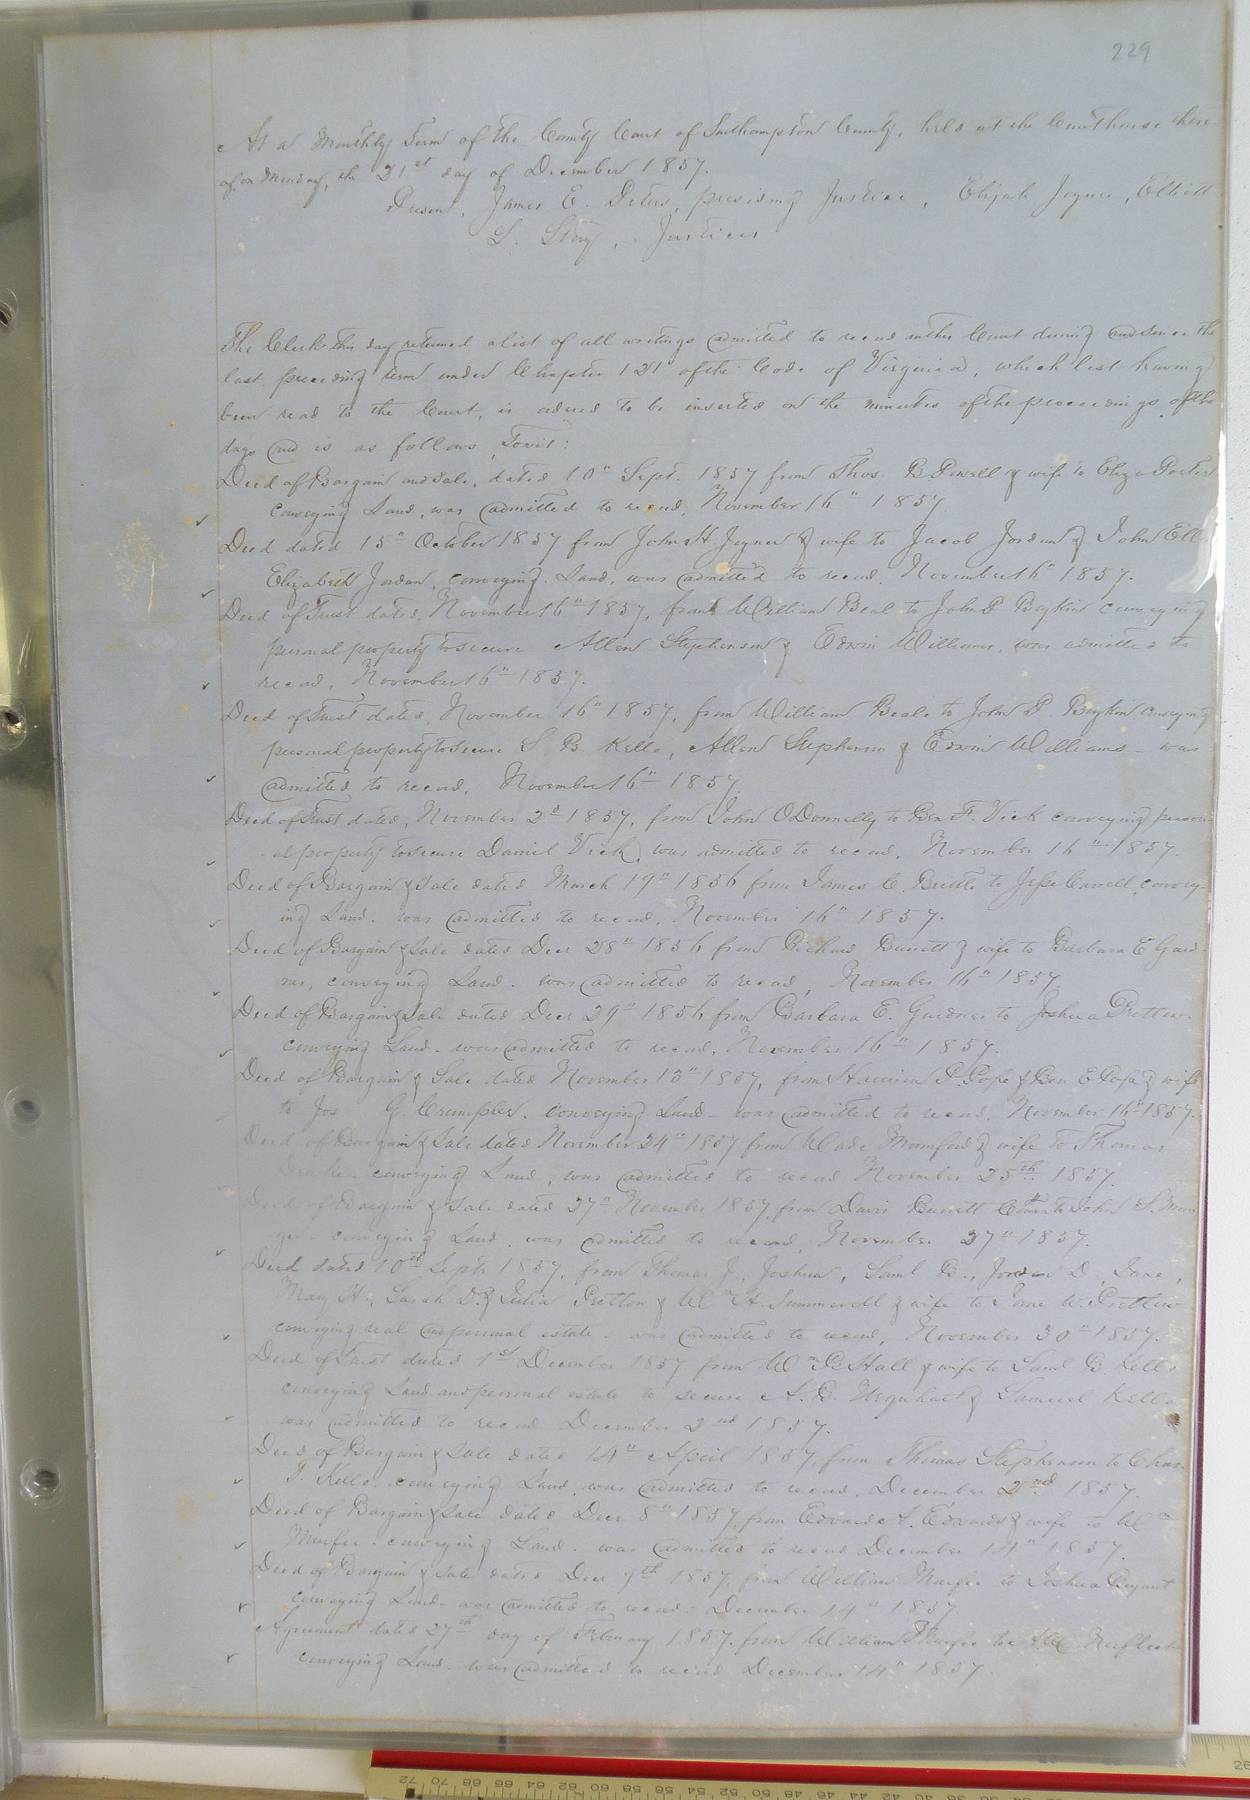 229
At a Monthly Term of the County Court of Southampton County, held at the Courthouse there-
of, on Monday, the 21st day of December 1857.
Present, James E. Peters, presiding Justice, Elijah Joyner, Elliott
L. Story, Justices
The Clerk this day returned a list of all writings admitted to record in this Court during and since the
last preceding term under Chapter 121 of the Code of Virginia, which list having
been read to the Court, is ordered to be inserted on the minutes of the proceedings of the
days and is as follows, Towit:
Deed of Bargain and Sale, dated 10" Sept. 1857 from Thos. B Powell & wife to Eliza Porter
conveying Land, was admitted to record, November 16" 1857
Deed dated 15" October 1857 from John H Joyner & wife to Jacob Jordan & John
Elizabeth Jordan, conveying Land, was admitted to record, November 16" 1857.
Deed of Trust dated, November 16" 1857, from William Beal to John P Boykin conveying
personal property to secure Allen Stephenson & Edwin Williams, was admitted to
record, November 16" 1857.
Deed of Trust dated, November 16" 1857, from William Beale to John P. Boykin conveying
personal property to secure S. B. Kello, Allen Stephenson & Edwin Williams - was
admitted to record, November 16" 1857
Deed of Trust dated, November 2d 1857, from John ODonnelly to Ben F. Vick conveying person-
-al property to secure Daniel Vick, was admitted to record, November 16" 1857.
Deed of Bargain & Sale dated March 19" 1856 from James C. Brittle to Jesse Carrell, convey-
ing Land. was admitted to record, November 16" 1857.
Deed of Bargain & Sale dated Decr 28" 1856 from Richard Barrett & wife to Barbara E Gard-
ner, conveying Land. was admitted to record, November 16" 1857
Deed of Bargain & Sale dated Decr 29" 1856 from Barbara E. Gardner to Joshua Pretlow.
conveying Land - was admitted to record, November 16" 1857.
Deed of Bargain & Sale dated November 13" 1857, from Harrison P. Pope & Ben E Pope & wife
to Jos G. Crumpler. conveying Land - was admitted to record, November 16" 1857.
Deed of Bargain & Sale dated November 24" 1857 from Wade Munford & wife to Thomas
Drake. conveying Land, was admitted to record November 25th 1857.
Deed of Bargain & Sale dated 27" November 1857, from Davis Barrett to John S.
conveying Land, was admitted to record, November 27" 1857.
Deed dated 10th Sept 1857, from Thomas J., Joshua, Saml B., Jordan D., Jane,
Mary H., Sarah D. & Julia Pretlow & Wm H. Summerell & wife to Jane W. Pretlow
conveying real and personal estate - was admitted to record, November 30" 1857.
Deed of Trust dated 1st December 1857 from Wm P. Hall & wife to Saml B. Kello
conveying Land and personal estate to secure A. B. Urquhart & Samuel Kello
was admitted to record December 2nd 1857.
Deed of Bargain & Sale dated 14" April 1857, from Thomas Stephenson to Chas.
F. Kello, conveying Land, was admitted to record, December 2nd 1857.
Deed of Bargain & Sale dated Decr 8" 1857, from Edward A. Edwards & wife to Wm
Murfee. conveying Land. was admitted to record December 14" 1857.
Deed of Bargain & Sale dated Decr 9th 1857, from William Murfee to Joshua Bryant
conveying Land. was admitted to record - December 14" 1857
Agreement dated 27th day of February 1857. from William Murfee to
conveying Land. was admitted to record December 14" 1857.
72 70 68 66 64 62 60 58 56 54 52 50 48 46 44 42 40 38 36 34 32 30 28 26